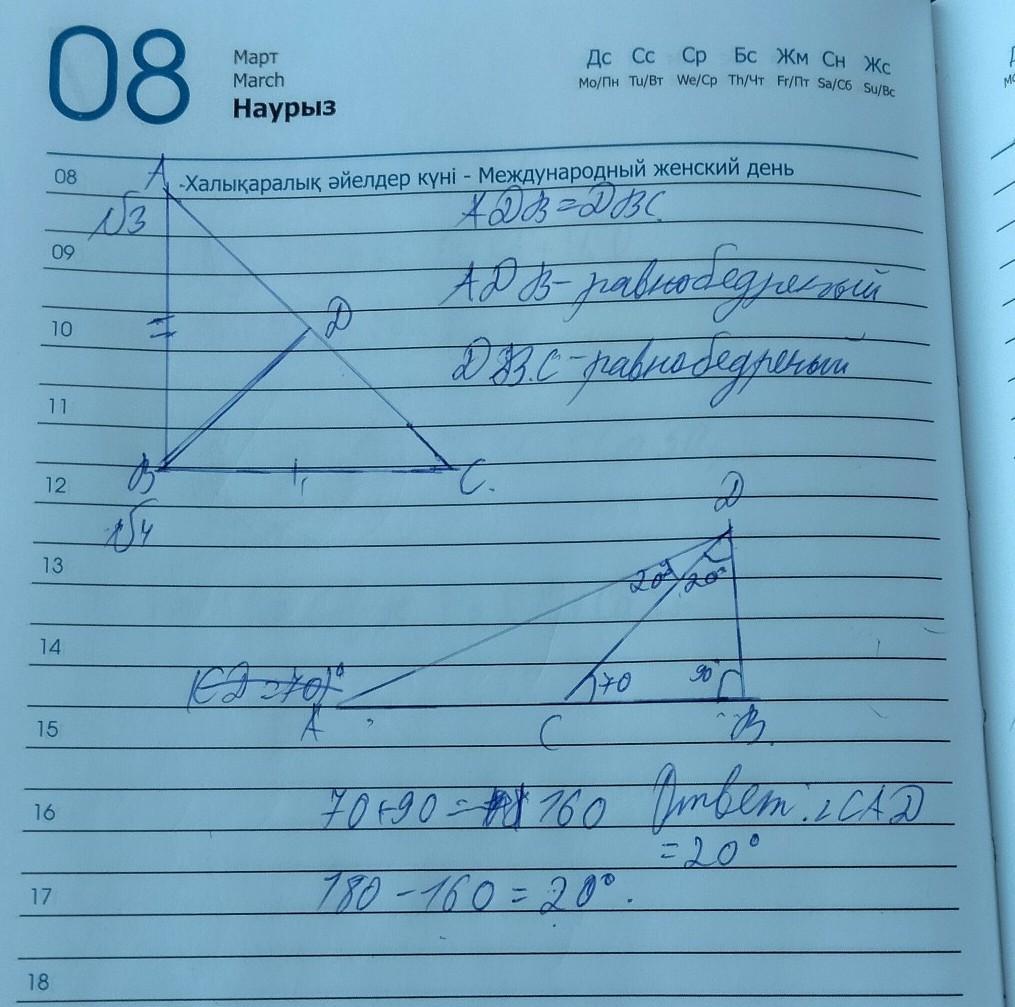 08
Март
March
Наурыз
Дс Сс Ср Бс Жм Сн Жс
Mo/Пн Tu/Вт We/Ср Th/Чт Fr/Пт Sa/Сб Su/Вс
08
-Халықаралық әйелдер күні - Международный женский день
A
√3
ADB=DBC
09
ADB-равнобедреный
10
D
DBC-равнобедреный
11
12
B
C.
√4
D
13
20° 20°
14
(CD=70)°
70
90°
15
A
C
B.
16
70+90= 160 Ответ: ∠CAD
=20°
17
180-160=20°.
18